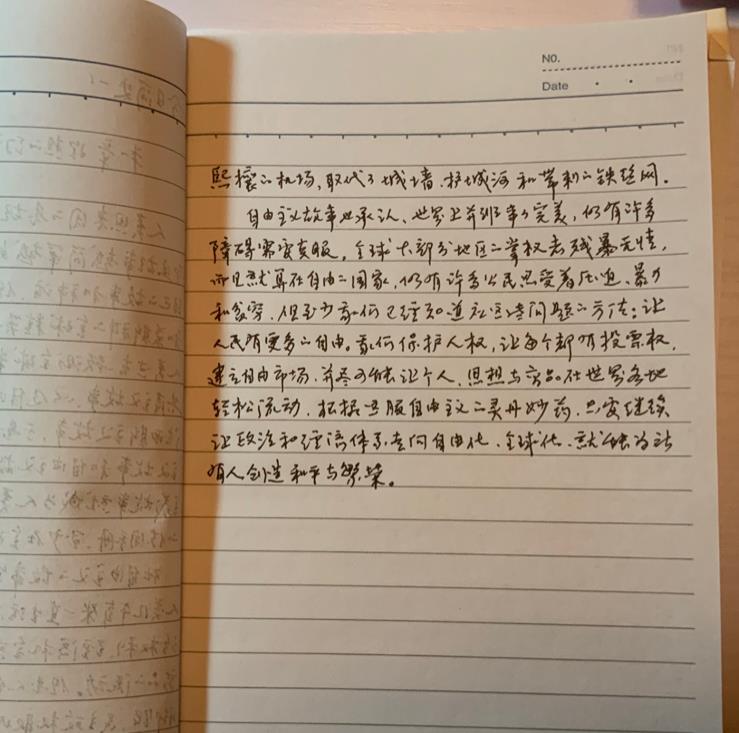 NO.
Date
熙攘的机场，取代了城墙、护城河和带刺的铁丝网。
自由主义故事也承认，世界上并非事事完美，仍有许多
障碍需要克服。全球大部分地区的掌权者残暴无情，
而且就算在自由的国家，仍有许多公民忍受着压迫、暴力
和贫穷。但至少我们已经知道社么问题的方法：让
人民有更多的自由。我们保护人权，让每个都有投票权，
建立自由市场，并尽可能让个人、思想与商品在世界各地
轻松流动。根据这服自由主义的灵丹妙药，只要继续
让政治和经济体系走向自由化、全球化，就能为所
有人创造和平与繁荣。